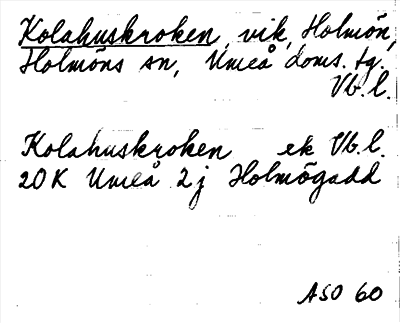 Kolahuskroken, vik, Holmön,
Holmöns sn, Umeå doms. tg.
Vb.l.
Kolahuskroken ek Vb.l.
20K Umeå 2j Holmögadd
ASO 60